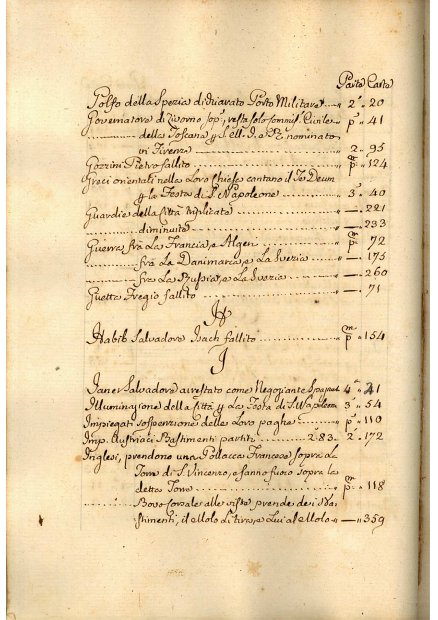 Parte Carte
Golfo della Spezia dichiarato Porto Militare " 2ª " 20
Governatore di Livorno sop: resta solo Commis.e Civile " pª " 41
della Toscana nominato
in Firenze 2 " 95
Gozzini Pietro fallito " pª " 124
Greci orientali nella Loro Chiesa cantano il Te Deum
p la Festa di S. Napoleone " 3ª " 40
Guardie della Città triplicate " — " 221
diminuite " — " 233
Guerra frà La Francia, e Algeri pª " 72
frà La Danimarca, e La Svezia " — " 175
frà La Russia, e La Svezia " — " 260
Guetta Fregio fallito " — " 71
H
Habib Salvadore Isach fallito " pª " 154
I
Janer Salvadore arrestato come Negoziante Spagnuolo 4ª "
Illuminazione della Città p La Festa di S. Napoleone 3ª " 54
Impiegati sospenzione delle Loro paghe " pª " 110
Imp. Austriaci Bastimenti partiti 2. 83. 2ª " 172
Inglesi, prendono una Polacca Francese sopra La
Torre di S. Vincenzo, e fanno fuoco sopra la
detta Torre " pª " 118
Bovo corsale alle viste prende dei Ba-
stimenti, il Molo Li tira, e Lui al Molo " — " 359